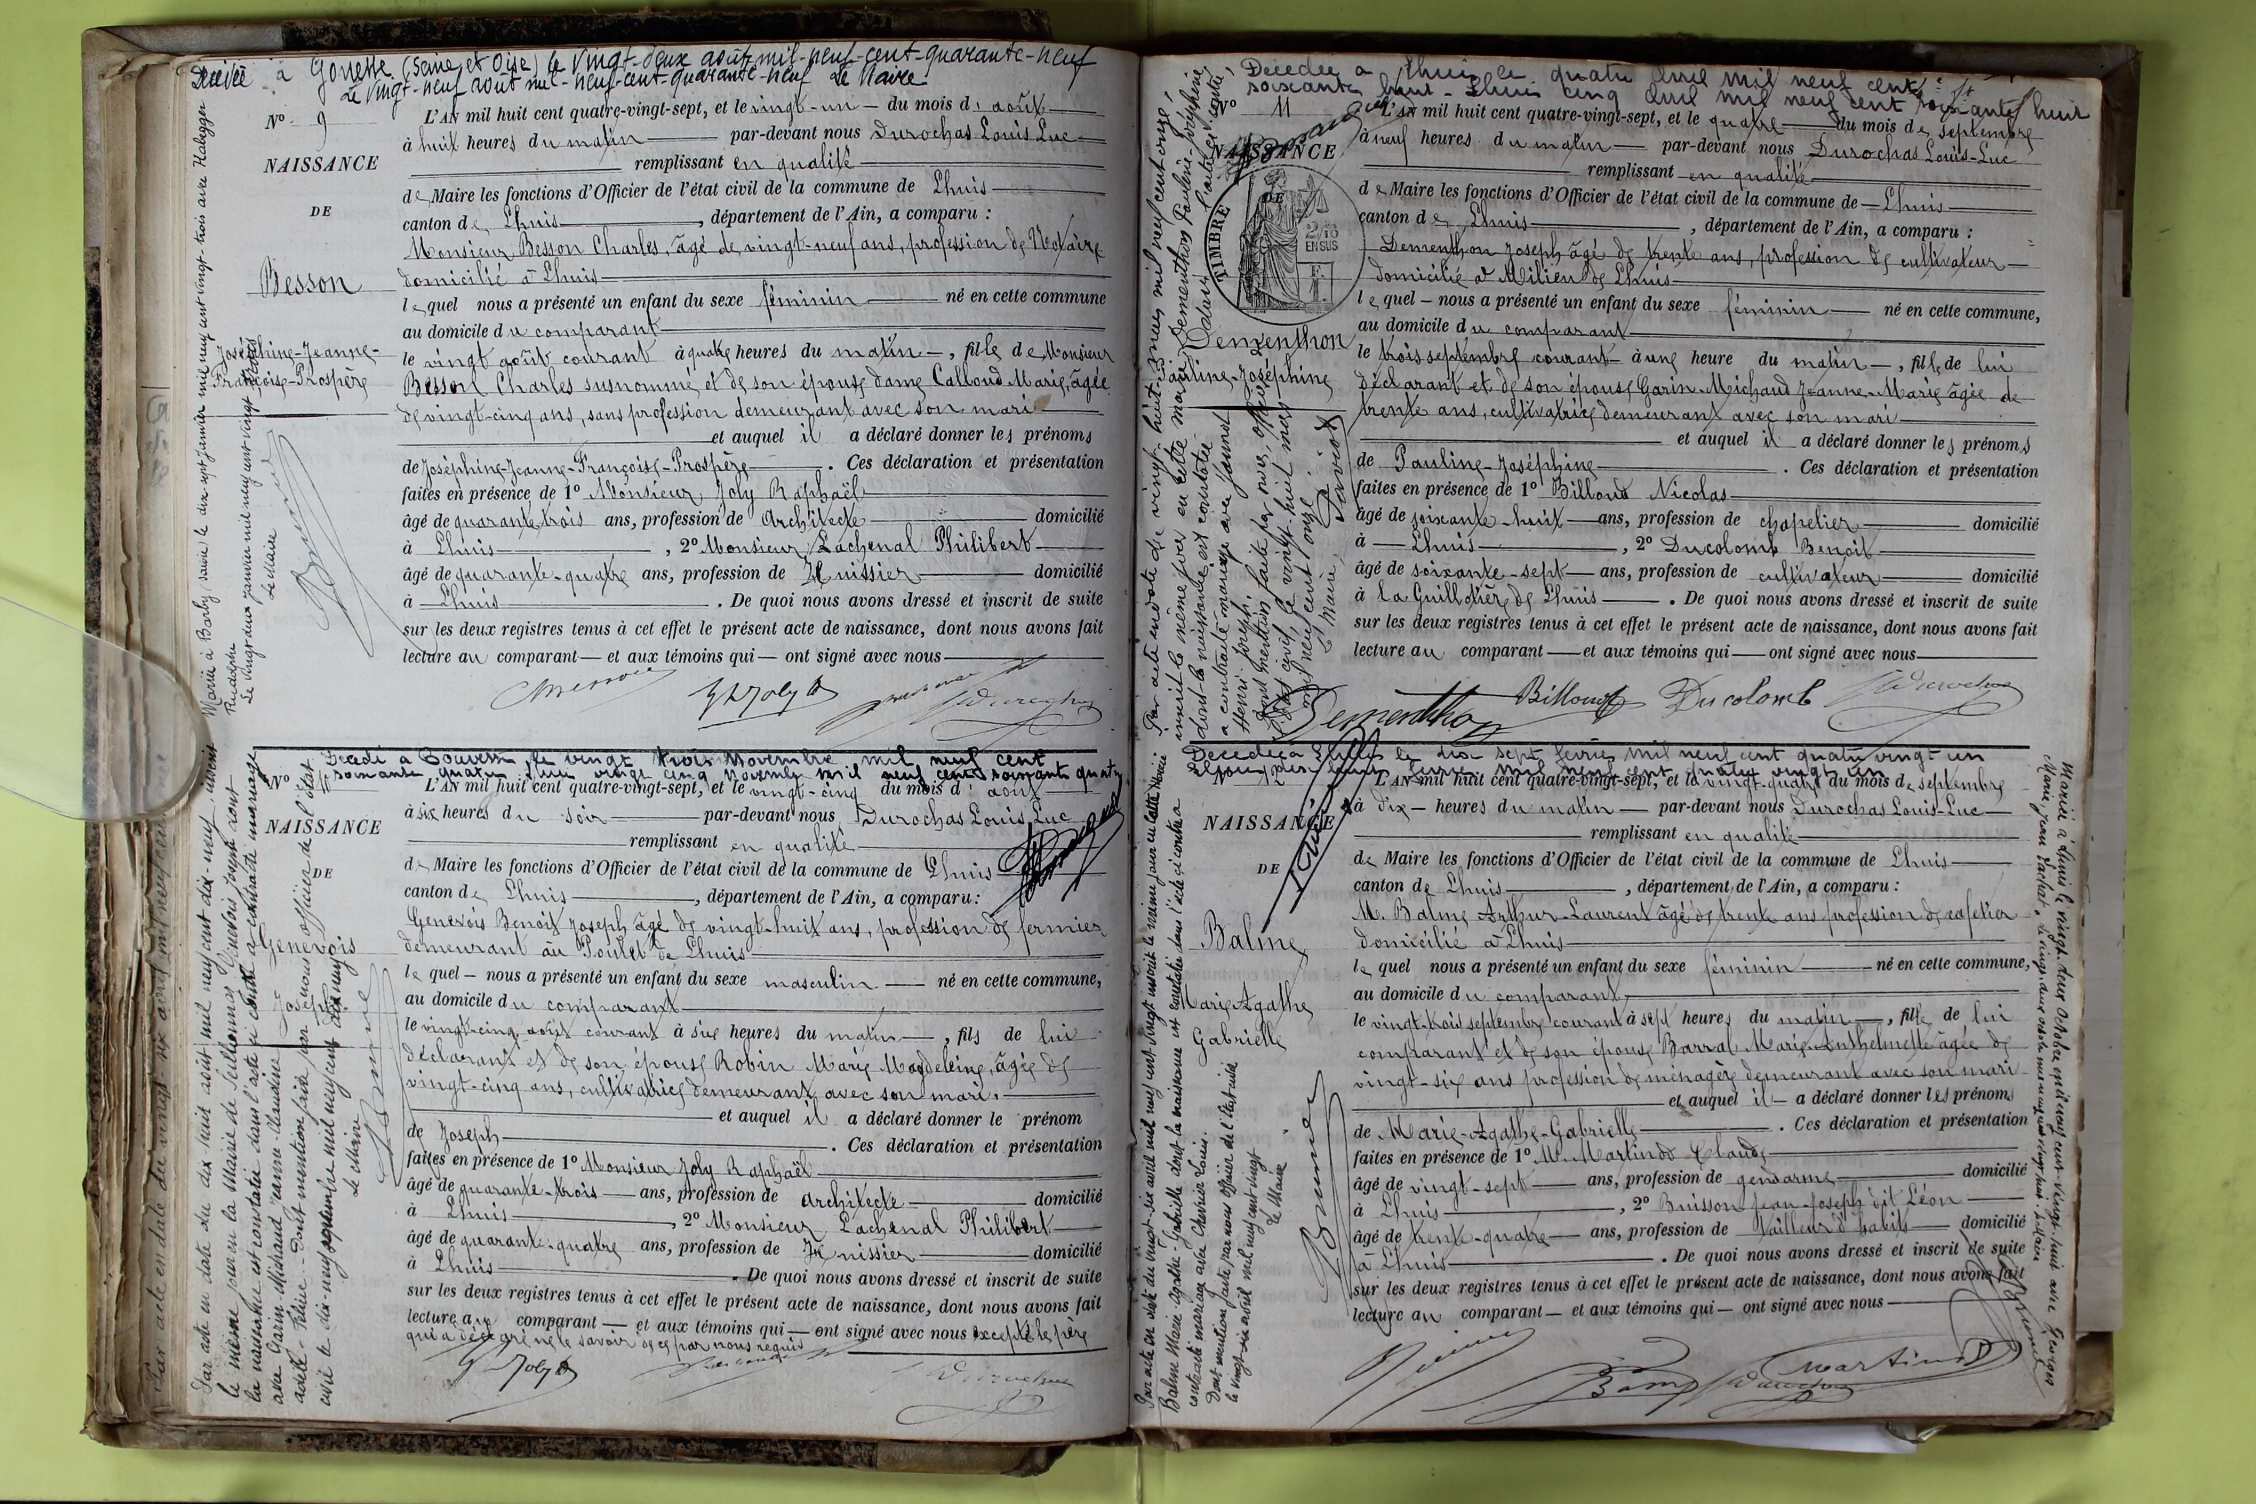 Décédée à Gonesse (Seine et Oise) le vingt-deux août mil-neuf-cent-quarante-neuf
Le vingt-neuf août mil-neuf-cent-quarante-neuf Le Maire
N° 9
NAISSANCE
DE
Besson
Joséphine-Jeanne-
Françoise-Prospère
L'AN mil huit cent quatre-vingt-sept, et le vingt-un du mois d' août
à huit heures du matin par-devant nous Durochas Louis Luc
remplissant en qualité
de Maire les fonctions d'Officier de l'état civil de la commune de Lhuis
canton de Lhuis, département de l'Ain, a comparu :
Monsieur Besson Charles, âgé de vingt-neuf ans, profession de Notaire
domicilié à Lhuis
lequel nous a présenté un enfant du sexe féminin né en cette commune
au domicile du comparant
le vingt août courant à quatre heures du matin, fille de Monsieur
Besson Charles susnommé et de son épouse dame Calloud Marie, âgée
de vingt-cinq ans, sans profession demeurant avec son mari
et auquel il a déclaré donner les prénoms
de Joséphine-Jeanne-Françoise-Prospère. Ces déclaration et présentation
faites en présence de 1° Monsieur Joly Raphaël
âgé de quarante-trois ans, profession de Architecte domicilié
à Lhuis, 2° Monsieur Lachenal Philibert
âgé de quarante-quatre ans, profession de Huissier domicilié
à Lhuis. De quoi nous avons dressé et inscrit de suite
sur les deux registres tenus à cet effet le présent acte de naissance, dont nous avons fait
lecture au comparant et aux témoins qui ont signé avec nous
Mariée à Barby, Savoie le dix-sept janvier mil neuf cent vingt-trois avec Habegger
Rudolphe
Le vingt deux janvier mil neuf cent vingt
Le Maire
Décédé à Bouvesse le vingt trois Novembre mil neuf cent
soixante quatre. Lhuis vingt cinq Novembre mil neuf cent soixante quatre
N°
NAISSANCE
DE
Genevois
Joseph
L'AN mil huit cent quatre-vingt-sept, et le vingt-cinq du mois d' août
à six heures du soir par-devant nous Durochas Louis Luc
remplissant en qualité
de Maire les fonctions d'Officier de l'état civil de la commune de Lhuis
canton de Lhuis, département de l'Ain, a comparu :
Genevois Benoît Joseph âgé de vingt-huit ans, profession de fermier
demeurant au Poulet de Lhuis
lequel – nous a présenté un enfant du sexe masculin né en cette commune,
au domicile du comparant
le vingt-cinq août courant à six heures du matin, fils de lui
déclarant et de son épouse Robin Marie Magdeleine, âgée de
vingt-cinq ans, cultivatrice demeurant avec son mari.
et auquel il a déclaré donner le prénom
de Joseph. Ces déclaration et présentation
faites en présence de 1° Monsieur Joly Raphaël
âgé de quarante-trois ans, profession de Architecte domicilié
à Lhuis, 2° Monsieur Lachenal Philibert
âgé de quarante-quatre ans, profession de Huissier domicilié
à Lhuis. De quoi nous avons dressé et inscrit de suite
sur les deux registres tenus à cet effet le présent acte de naissance, dont nous avons fait
lecture au comparant – et aux témoins qui – ont signé avec nous excepté le père
qui a déclaré ne le savoir de ce par nous requis
Par acte en date du dix-huit août mil neuf cent dix-neuf, inscrit
le même jour en la Mairie de Genevois Joseph dont
la naissance est constatée dans l'acte ci contre a contracté mariage
avec Garin-Michaud Jeanne-Claudine
Dont mention faite par nous officier de l'état
civil le dix-neuf septembre mil neuf cent dix neuf
Le Maire
Décédée à Lhuis le quatre avril mil neuf cent
soixante huit. Lhuis cinq avril mil neuf cent soixante huit
N° 11
NAISSANCE
DE
TIMBRE
2/10
EN SUS
F.
Dementhon
Pauline-Joséphine
L'AN mil huit cent quatre-vingt-sept, et le quatre du mois de septembre
à neuf heures du matin par-devant nous Durochas Louis-Luc
remplissant en qualité
de Maire les fonctions d'Officier de l'état civil de la commune de Lhuis
canton de Lhuis, département de l'Ain, a comparu :
Dementhon Joseph âgé de trente ans, profession de cultivateur
domicilié à Milieu de Lhuis
lequel – nous a présenté un enfant du sexe féminin né en cette commune,
au domicile du comparant
le trois septembre courant à une heure du matin, fille de lui
déclarant et de son épouse Garin-Michaud Jeanne-Marie âgée de
trente ans, cultivatrice demeurant avec son mari
et auquel il a déclaré donner les prénoms
de Pauline-Joséphine. Ces déclaration et présentation
faites en présence de 1° Billoud Nicolas
âgé de soixante-huit ans, profession de chapelier domicilié
à Lhuis, 2° Ducolomb Benoit
âgé de soixante-sept ans, profession de cultivateur domicilié
à la Guillotière de Lhuis. De quoi nous avons dressé et inscrit de suite
sur les deux registres tenus à cet effet le présent acte de naissance, dont nous avons fait
lecture au comparant et aux témoins qui ont signé avec nous
Dementhon Billoud Ducolomb
Par acte en date du vingt huit mars mil neuf cent onze,
inscrit le même jour en cette mairie, Dementhon Pauline-Joséphine
dont la naissance est constatée
a contracté mariage avec
Henri Joseph.
Dont mention faite par nous, officier
de l'état civil, le vingt-huit mars
mil neuf cent onze.
Le Maire,
Décédée à le dix sept février mil neuf cent quatre vingt un
N° 12
NAISSANCE
DE
Balme
Marie Agathe
Gabrielle
L'AN mil huit cent quatre-vingt-sept, et le vingt-quatre du mois de septembre
à dix heures du matin par-devant nous Durochas Louis-Luc
remplissant en qualité
de Maire les fonctions d'Officier de l'état civil de la commune de Lhuis
canton de Lhuis, département de l'Ain, a comparu :
M. Balme Arthur-Laurent âgé de trente ans profession de cafetier
domicilié à Lhuis
lequel nous a présenté un enfant du sexe féminin né en cette commune,
au domicile du comparant,
le vingt-trois septembre courant à sept heures du matin, fille de lui
comparant et de son épouse Barral Marie-Anthelmette âgée de
vingt-six ans profession de ménagère demeurant avec son mari
et auquel il a déclaré donner les prénoms
de Marie-Agathe-Gabrielle. Ces déclaration et présentation
faites en présence de 1° M. Martinod Claude
âgé de vingt-sept ans, profession de gendarme domicilié
à Lhuis, 2° Buisson Jean-Joseph dit Léon
âgé de trente-quatre ans, profession de tailleur d'habits domicilié
à Lhuis. De quoi nous avons dressé et inscrit de suite
sur les deux registres tenus à cet effet le présent acte de naissance, dont nous avons fait
lecture au comparant – et aux témoins qui – ont signé avec nous
Martinod
Par acte en date du vingt-six avril mil neuf cent vingt inscrit le même jour en cette Mairie
Balme Marie-Agathe-Gabrielle dont la naissance est constatée dans l'acte ci contre a
contracté mariage avec Chevrier Louis.
Dont mention faite par nous officier de l'état civil
le vingt-six avril mil neuf cent vingt
Le Maire
Mariée à Lhuis le vingt deux octobre mil neuf cent vingt-huit avec
Marie Jean